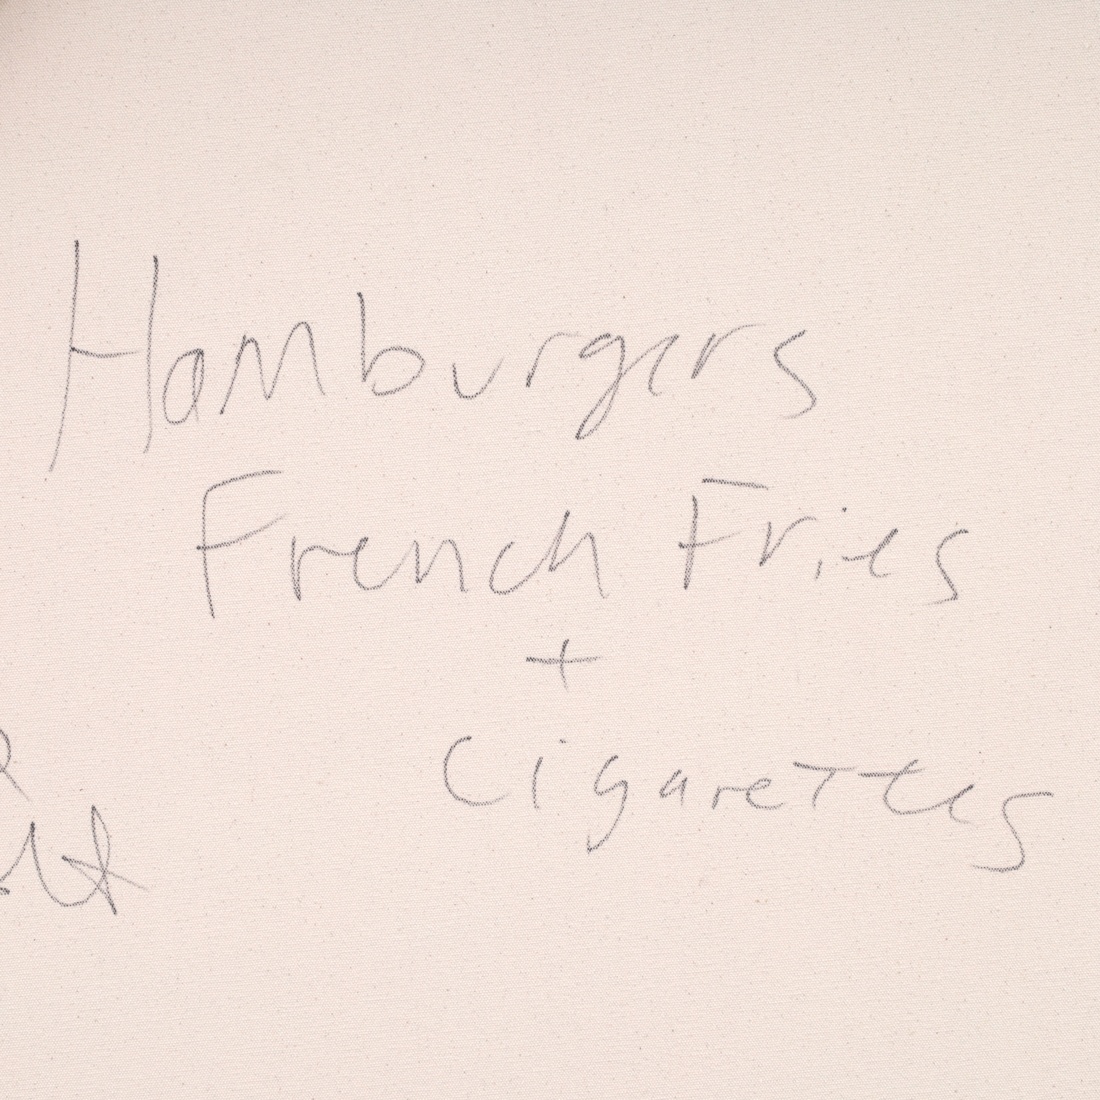 Hamburgers
French Fries
+
Cigarettes